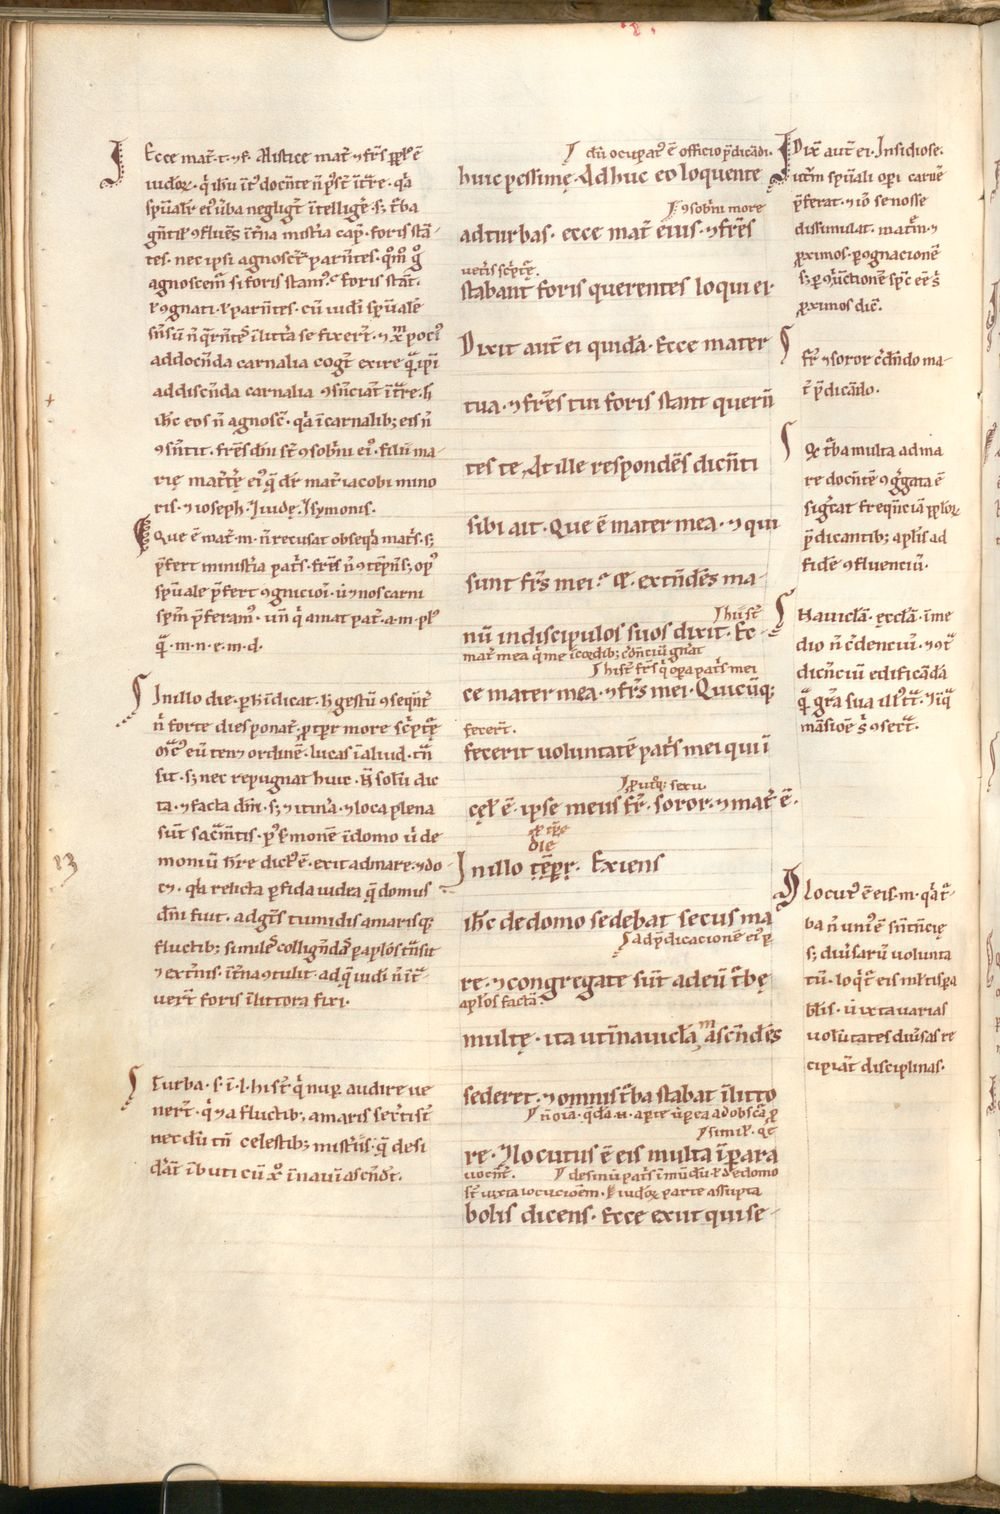 Ecce mat̄.t.⁊ f̄. Mistice mat̄ ⁊ fr̄s pp̄ls ē
iudoꝝ. q̄ ih̄u īt̾ docn̄te n̄ p̄st̄ īt̄re. q̄a
sp̄ualit̾ ei᾿ ūba negligt̄ ītellige̾. s; t̾ba
gn̄tiū ꝯfluēs īt̾na mist̾ia cap̄. foris stā-
tes. nec ipsi agnosct̄ parn̄tes. q̄m̄
agnoscem̄ si foris stam᾿. foris stāt.
ꝯgnati. parn̄tes. cū iudi sp̄ualē
sn̄sū n̄ q̄rn̄tes īlitt̾a se fixert̄. ⁊ xp̄m poci᾿
addocn̄da carnalia cogt̄ exire q̄ ip̄i
addiscn̄da carnalia ꝯsn̄ciāt īt̾re. h̄
ih̄c eos n̄ agnosc̄. q̄a ī carnalib; eis n̄
ꝯsn̄tit. fr̄es dn̄i st̄ ꝯsobrn̄i ei᾿. filii ma-
rię mat̾tę ei᾿ q̄ dr̄ mat̄ iacobi mino
ris. ⁊ ioseph. ⁊ iudę. ⁊ symonis.
Que ē mat̄.m. n̄ recusat obseq̄a mat̾s. s;
p̄fert minist̾ia pat̾s. fr̄es n̄ ꝯtēpn̄s; op᾿
sp̄uale p̄fert ꝯgnicioī. ū ⁊ nos carni
sp̄m p̄feram᾿. un̄ q̄ amat pat̾.a.m.pl᾿
q̄.m.n.e.m.d.
In illo die. p h̄ īdicat. h̄ gestū ꝯseqn̄t̄
n̄ forte dies ponat̄. ꝓpt̾ more sc̾pt̾ę
eūtem ordinē. lucas ī aliud. tn̄
sit. s; nec repugnat huic. N̄ solū dic
ta. ⁊ facta dn̄i. s; ⁊ itin̾a. ⁊ loca plena
sūt sac̾mn̄tis. p᾿ s̾monē īdomo ū de
moniū h̄re dict᾿ ē. exit ad mare. ⁊ do
cet. q̄a relicta pfida iudea q̄ domus
dn̄i fuit. adgn̄s tumidis amarisq;
fluctib; similes collign̄das p apl̄os t̾nsit
⁊ ext̾nis. īt̾na ꝯtulit. ad q̄ iudi n̄ īt̾-
uert̄ foris īlittora fixi.
Turba.s.ī.l. hi st̄ q̄ nup̄ audire ue
nert̄. q̄ ⁊ a fluctib; amaris sec̾ti st̄
nec dū tn̄ celestib; mist̾iis. q̄ desi
d̾āt imbuti cū xp̄o īnaui ascn̄dt̄.
dū ocupat᾿ ē officio p̄dicādi.
huic pessimę. Ad huc eo loquente
ꝯsobrn̄i more
ad turbas. ecce mat̄ eius. ⁊ fr̄es
uet̾is sc̾pt̾ę.
stabant foris querentes loqui ei.
Dixit aut̄ ei quidā. Ecce mater
tua. ⁊ fr̄es tui foris stant quern̄
tes te. At ille respondēs dicn̄ti
sibi ait. Que ē mater mea. ⁊ qui
sunt fr̄s mei? Et. extn̄dēs ma-
hii st̄
nū indiscipulos suos dixit. Ec-
mat̄ mea q̄ me ī cordib; c̾dn̄ciū gn̄at
hi st̄ fr̄s q̄ opera pat̾s mei
ce mater mea. ⁊ fr̄s mei. Quicūq;
fecert̄.
fecerit uoluntatē pat̾s mei qui ī
ꝓ utq; sexu
cęl᾿ ē. ipse meus fr̄. soror. ⁊ mat̄ ē.
die
In illo tēp̄r̄. Exiens
ih̄c de domo sedebat secus ma
ad p̄dicacionē ei᾿ p
re. ⁊ congregate sūt ad eū t̾bę
apl̄os factā.
multę. ita ut īnauiclām ascn̄dēs
sederet. ⁊ omnis t̾ba stabat īlitto
n̄ oīa. q̄dā n̄. apte ut pea ad obscā p
simil᾿. q̄
re. ⁊ locutus ē eis multa īpara
uocn̄t̄. de sinu pat̾s ī mūdū. t̄ de domo
st̄ iuxta locucionem. t̄ iudoꝝ parte assūpta
bolis dicens. Ecce exiit qui se-
Dix̄ aut̄ ei. Insidiose.
ut̄m sp̄uali opi carnē
p̄ferat. ⁊ iō se nosse
dissimulat. matrē. ⁊
ꝓximos. p ꝯgnacionē
s; p ꝯiūctionē sp̄c eē s̾
ꝓximos dic̄.
fr̄ ⁊ soror c̾dn̄do ma-
t̄ p̄dicādo.
Et t̾ba multa ad ma
re docn̄te ꝯg̾gata ē
sig̾cat freqn̄ciā pp̄loꝝ
p̄dicantib; aplīs ad
fidē ꝯfluenciū.
Nauiclā. ęcclā. ī me
dio n̄ c̾dencium. ⁊ ꝯt̾
dicn̄ciū edificādā
q̄ gr̄a sua
māsioē s̾ ꝯsec̾t.
Et locut᾿ ē eis.m. q̄a t̾-
ba n̄ uni᾿ ē sn̄tn̄cię
s; diu̾sarū uolunta
tū. loq̄t̾ eis ml̄tis pa
bl̄is. ū iuxta uarias
uolūtates diu̾sas re
cipiāt disciplinas.